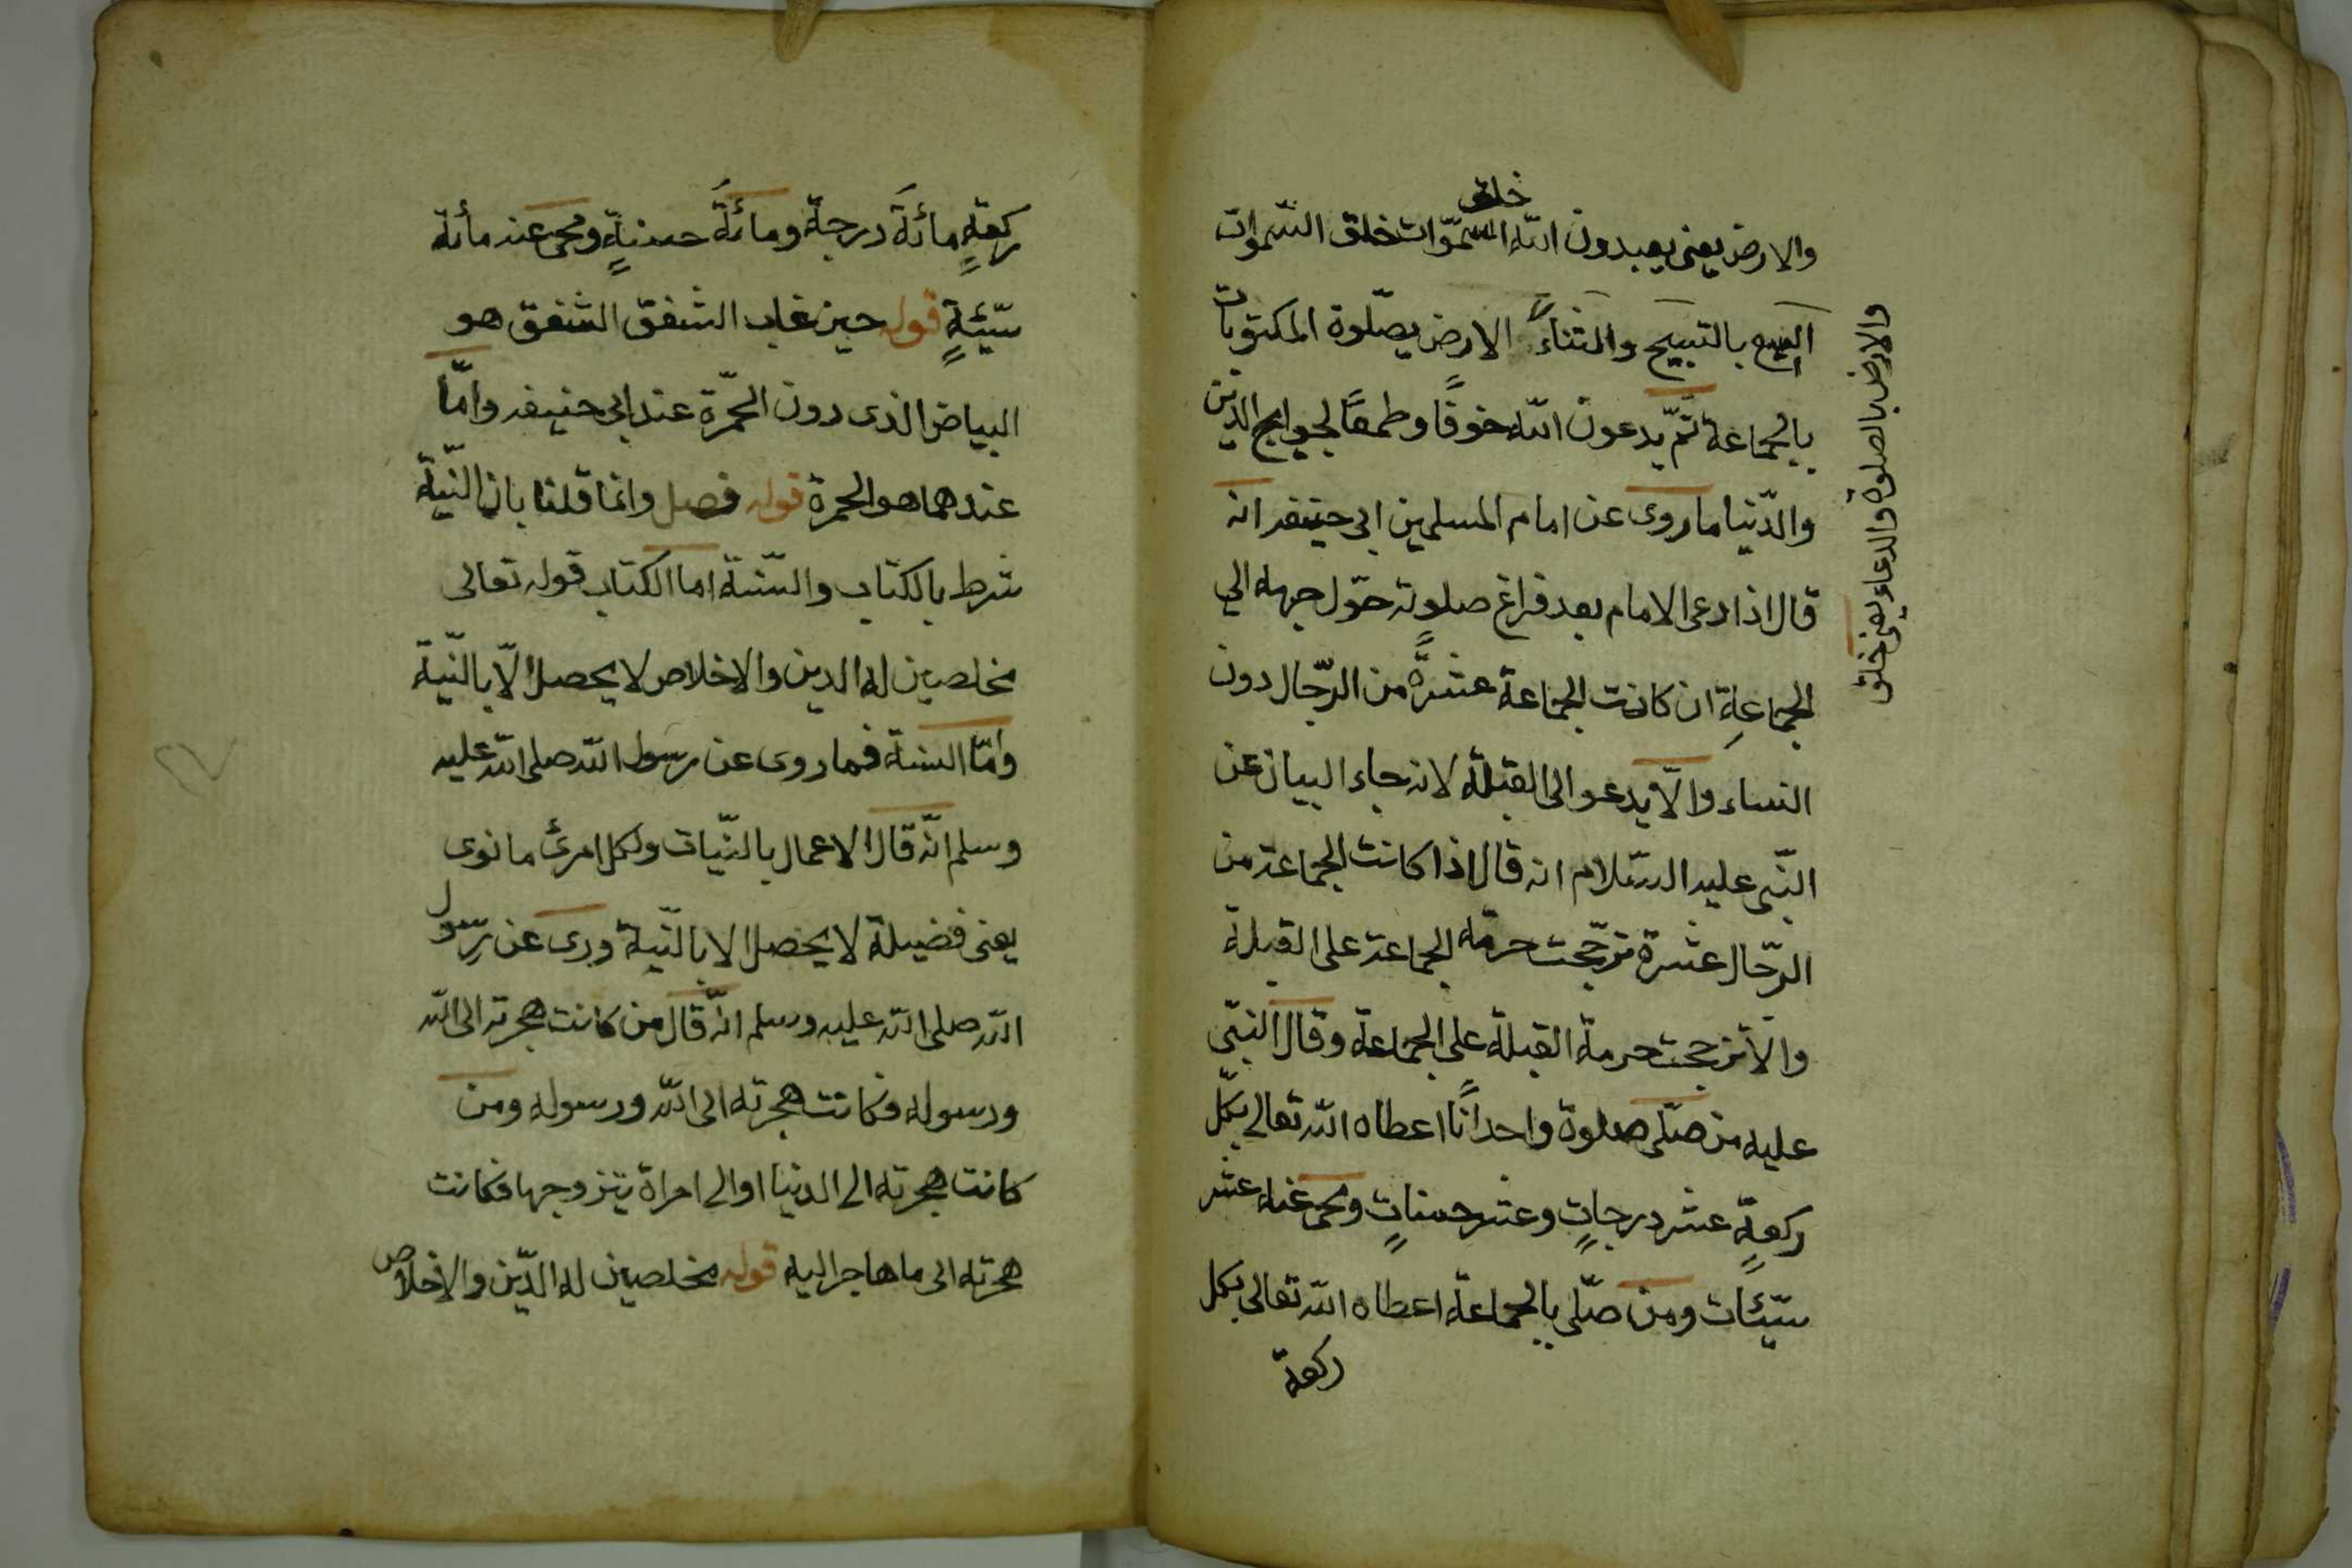 خلق
والارض يعنى يعبدون الله السموات خلق السموات
السبع بالتسبيح والثناء الارض يصلوة المكتوبات
بالجماعة ثم يدعون الله خوفا وطمعا لحوايج الدين
والدنيا ما روى عن امام المسلمين ابى حنيفه انه
قال اذا دعى الامام بعد فراغ صلوته حول جهه الي
الجماعة ان كانت الجماعة عشرة من الرجال دون
النساء والا يدعو الى القبلة لانه جاء البيان عن
النبى عليه السلام انه قال اذا كانت الجماعة من
الرجال عشرة ترجحت حرمة الجماعة على القبلة
والا ترجحت حرمة القبلة على الجماعة وقال النبى
عليه من صلى صلوة واحدانا اعطاه الله تعالى بكل
ركعة عشر درجات وعشر حسنات ومحى عنه عشر
سيئات ومن صلى بالجماعة اعطاه الله تعالى بكل
ركعة
والارض بالصلوة والدعاء يعنى خلق
ركعة مائة درجة ومائة حسنة ومحى عنه مأئة
سيئة قوله حين غاب الشفق الشفق هو
البياض الذى دون الحمرة عند ابى حنيفه واما
عندهما هو الحمرة قوله فصل وانما قلنا بان النية
شرط بالكتاب والسنة اما الكتاب قوله تعالى
مخلصين له الدين والاخلاص لا يحصل الا بالنية
واما السنة فما روى عن رسول الله صلى الله عليه
وسلم انه قال الاعمال بالنيات ولكل امرئ ما نوى
يعنى فضيلة لا يحصل الا بالنية وروى عن رسول
الله صلى الله عليه وسلم انه قال من كانت هجرته الى الله
ورسوله فكانت هجرته الى الله ورسوله ومن
كانت هجرته الى الدنيا او الى امراة يتزوجها فكانت
هجرته الى ما هاجر اليه قوله مخلصين له الدين والاخلاص